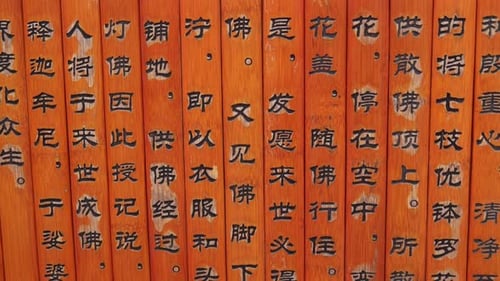 利殷重心 清净至
的将七枝优钵罗花
供散佛顶上。所散
花，停在空中，变
花盖，随佛行住。
是，发愿来世必得
佛。又见佛脚下
泞，即以衣服和头
铺地，供佛经过。
灯佛因此授记说，
人将于来世成佛，
释迦牟尼，于娑婆
界度化众生。